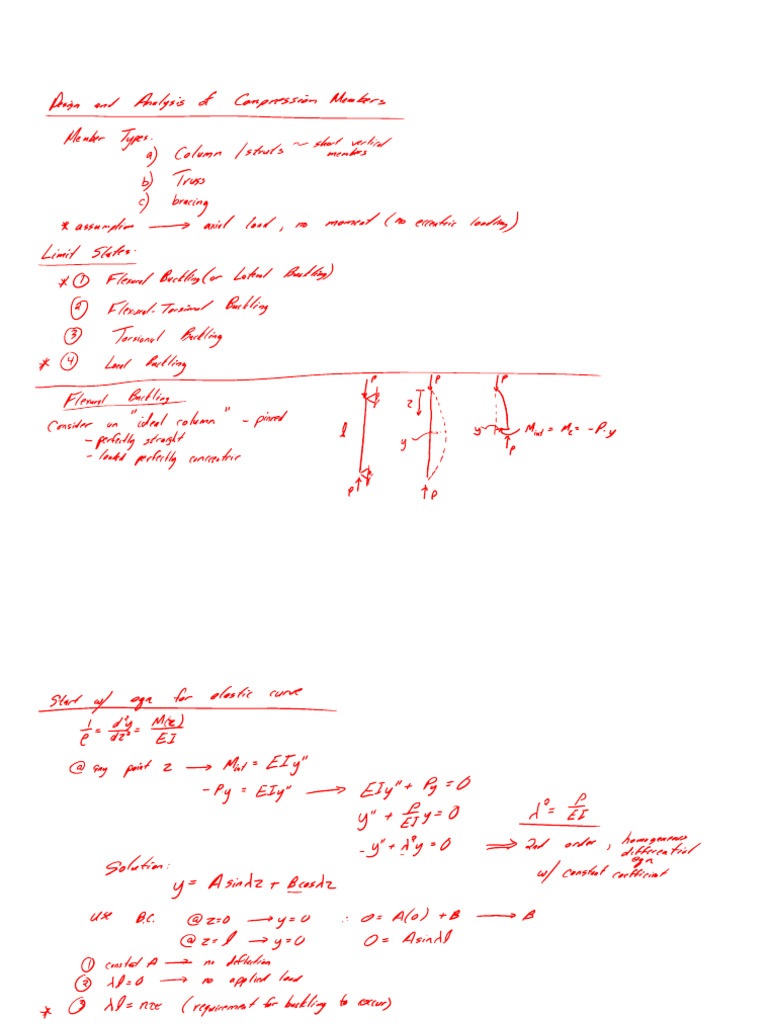 Design and Analysis of Compression Members
Member Types:
a) Column / struts ~ short vertical members
b) Truss
c) bracing
* assumption → axial load, no moment (no eccentric loading)
Limit States:
* ① Flexural Buckling (or Lateral Buckling)
② Flexural-Torsional Buckling
③ Torsional Buckling
* ④ Local Buckling
Flexural Buckling
Consider an "ideal column" - pinned
- perfectly straight
- loaded perfectly concentric
P P P
z
l y y M_int = M_z = -P·y
P
P P
Start w/ eqn for elastic curve
1/ρ = d²y/dz² = M(z)/EI
@ any point z → M_int = EIy"
-Py = EIy" → EIy" + Py = 0
y" + P/EI y = 0 λ² = P/EI
-y" + λ²y = 0 ⇒ 2nd order, homogeneous differential eqn
w/ constant coefficient
Solution:
y = A sinλz + B cosλz
Use B.C. @ z=0 → y=0 ∴ 0 = A(0) + B → B
@ z=l → y=0 0 = A sinλl
① constant A → no deflection
② λl=0 → no applied load
* ③ λl = nπ (requirement for buckling to occur)